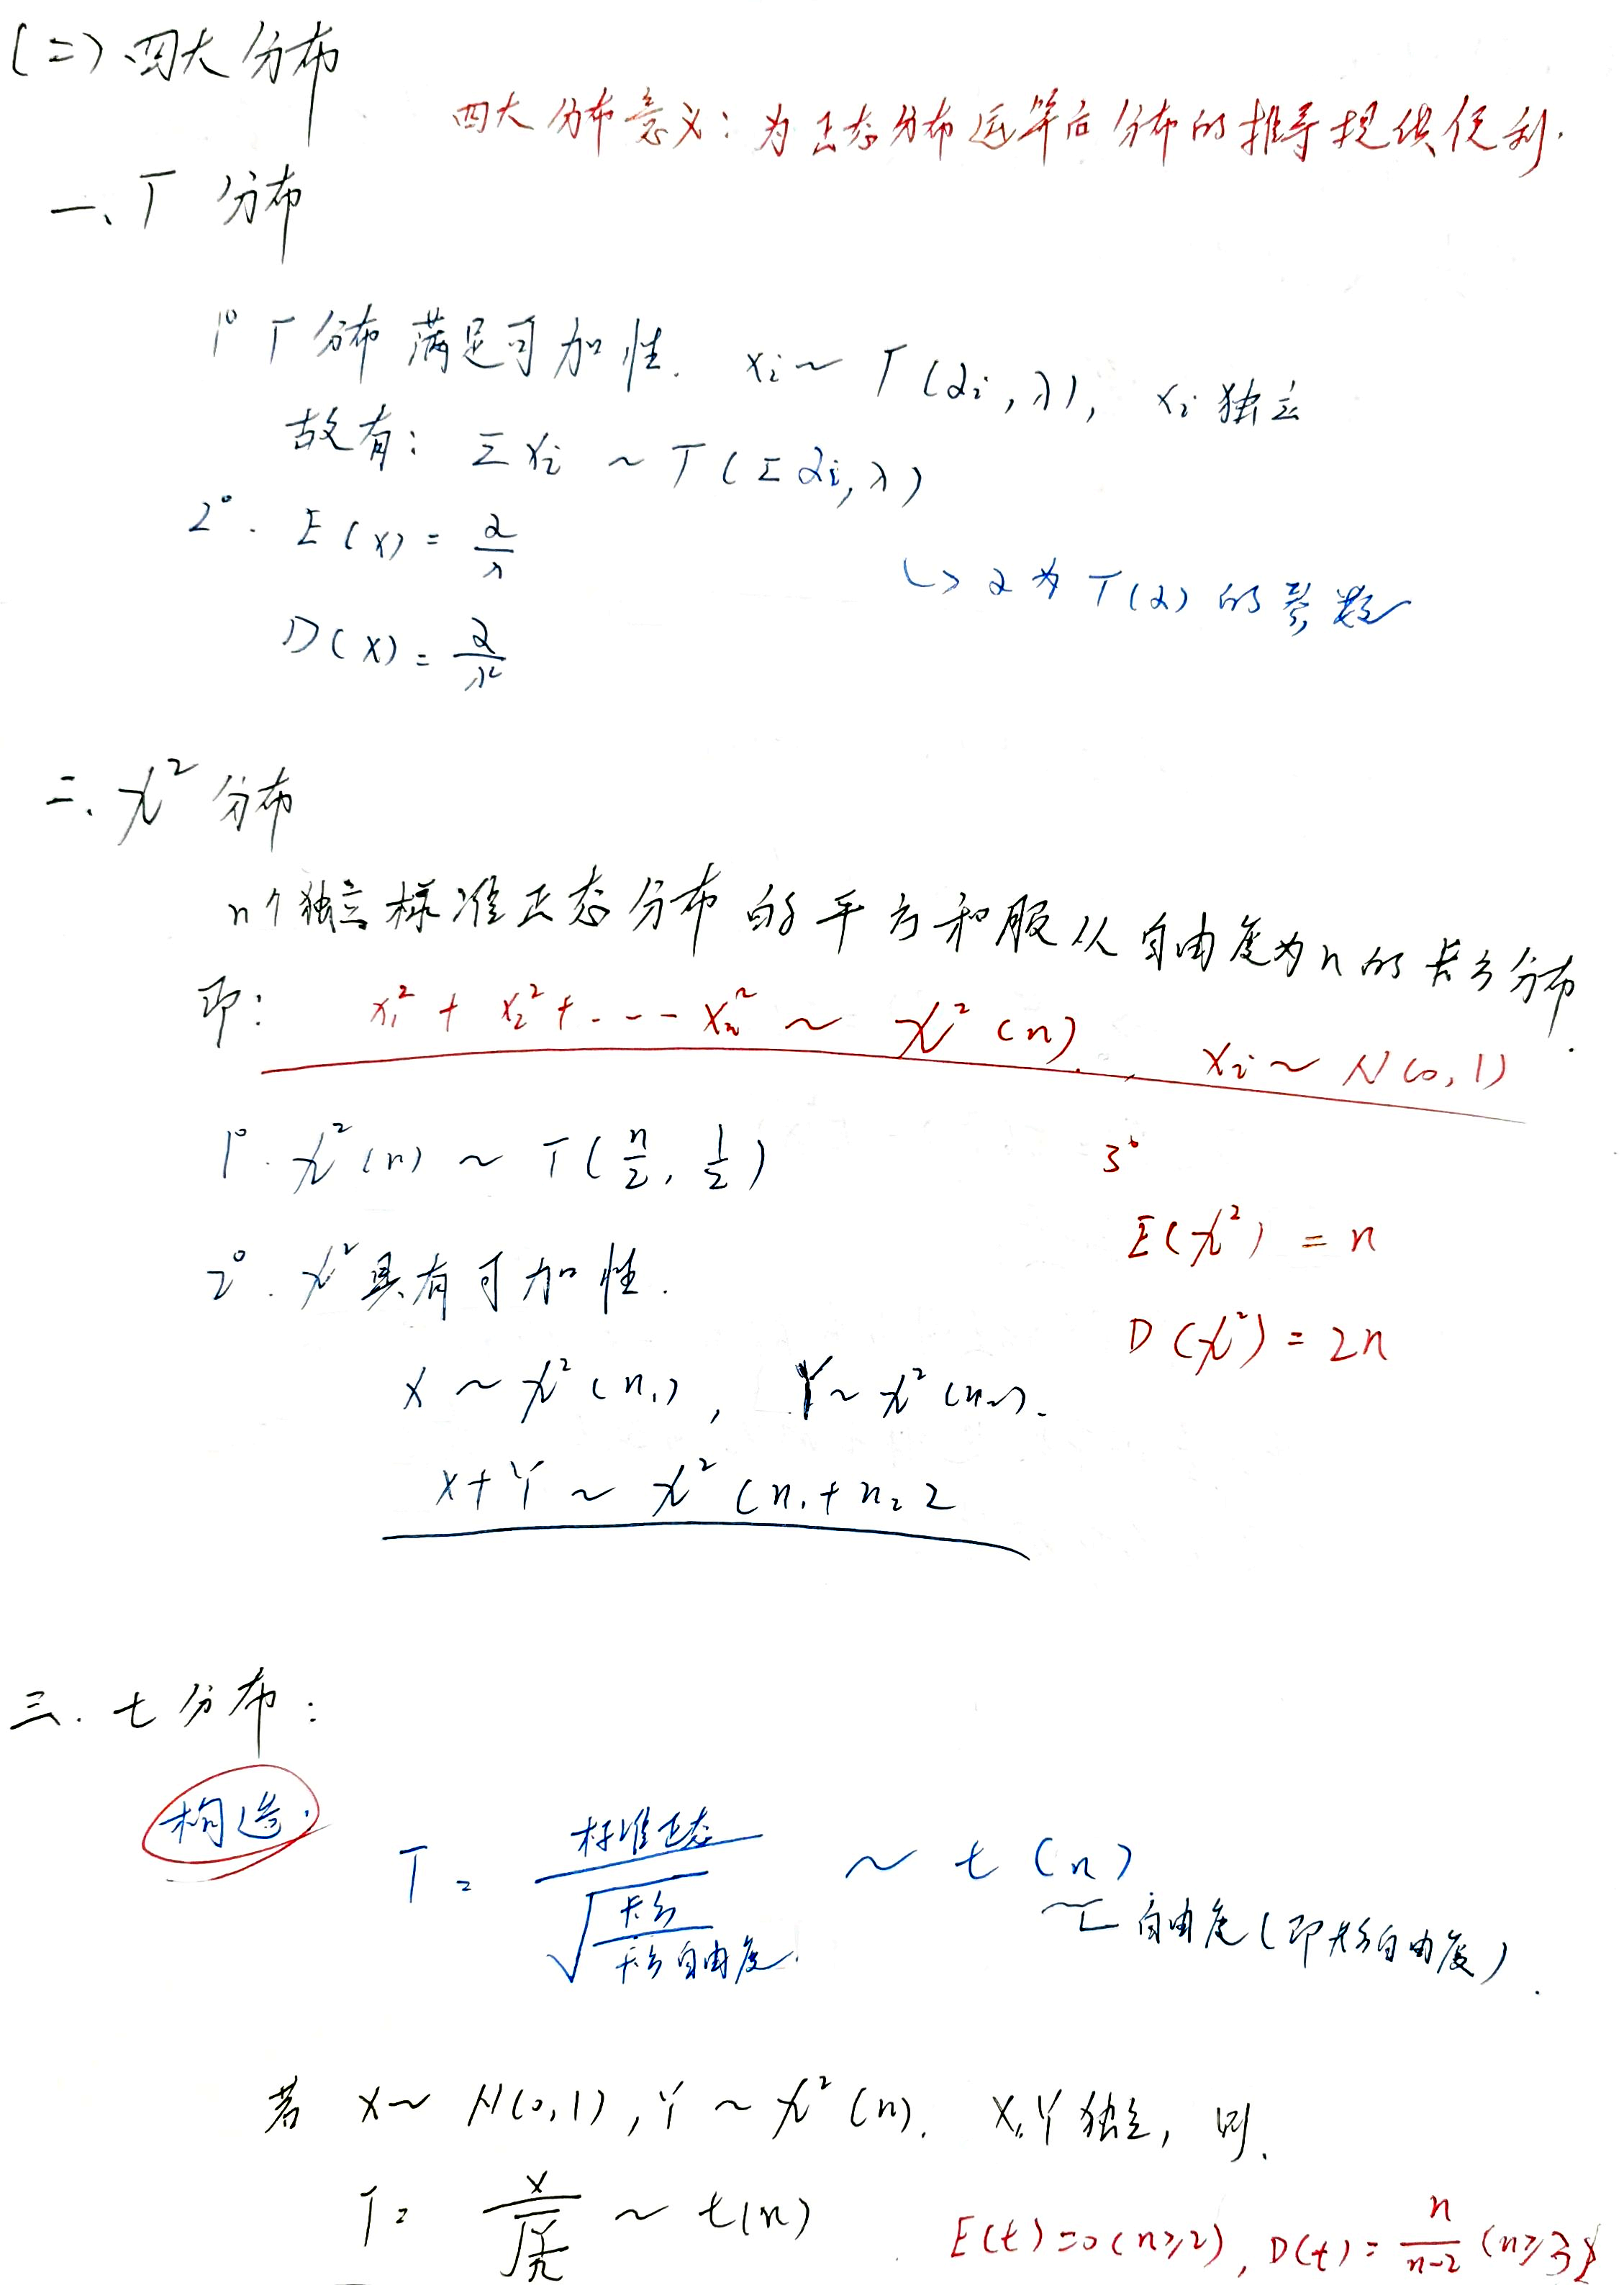 (二) 四大分布
四大分布意义: 为正态分布运算后分布的推导提供便利.
一、Γ 分布
1° Γ分布满足可加性. Xi ~ Γ(αi, λ), Xi 独立
故有: ΣXi ~ Γ(Σαi, λ)
2°. E(X) = α/λ
↳ α为Γ(α)的参数
D(X) = α/λ²
二. χ² 分布
n个独立标准正态分布的平方和服从自由度为n的卡方分布.
即: X₁² + X₂² + ---- Xn² ~ χ²(n). Xi ~ N(0,1)
1°. χ²(n) ~ Γ(n/2, 1/2)
3°
E(χ²) = n
2°. χ²具有可加性.
D(χ²) = 2n
X ~ χ²(n₁), Y ~ χ²(n₂).
X+Y ~ χ²(n₁+n₂)
三. t分布:
构造:
T = 标准正态/√(卡方/卡方自由度) ~ t(n)
自由度(即卡方自由度).
若 X ~ N(0,1), Y ~ χ²(n). X,Y独立, 则.
T = X/√(Y/n) ~ t(n)
E(t)=0(n≥2), D(t)= n/(n-2) (n≥3)